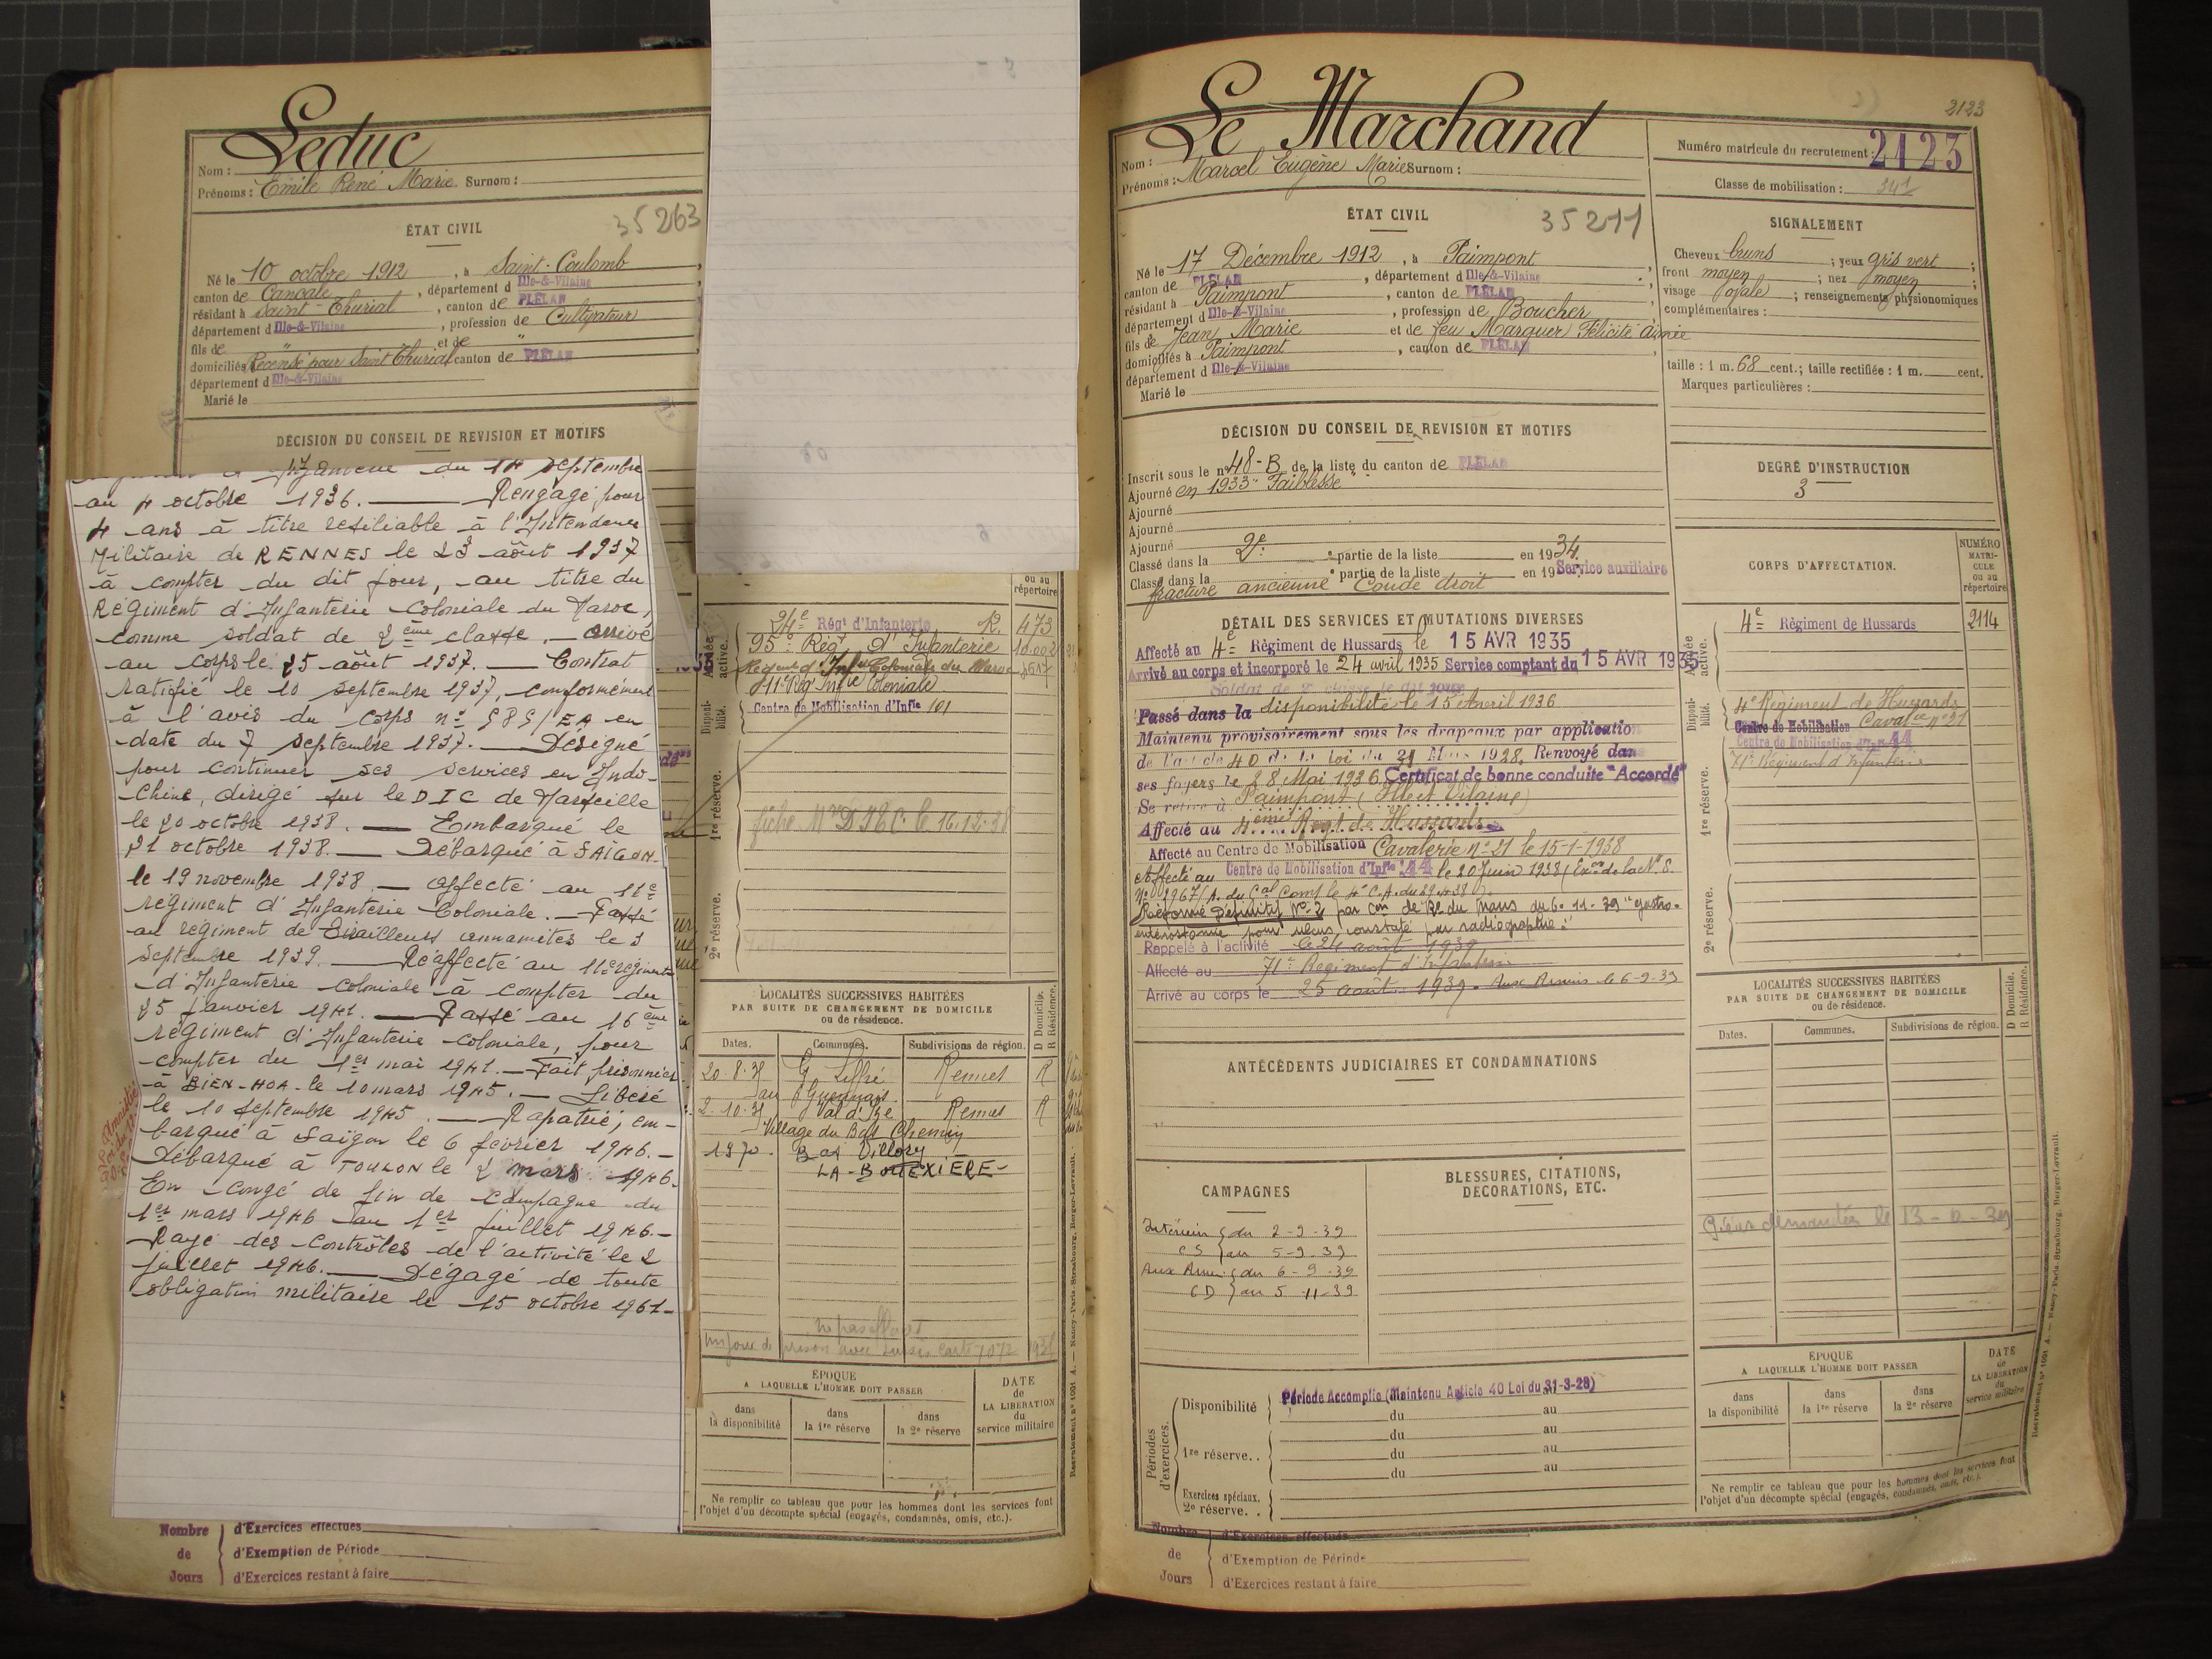 Leduc
Nom :
Prénoms : Emile René Marie Surnom :
ÉTAT CIVIL
35263
Né le 10 octobre 1912, à Saint-Coulomb
canton de Cancale, département d Ille-&-Vilaine
résidant à Saint-Thurial, canton de PLÉLAN
département d Ille-&-Vilaine, profession de Cultivateur
fils de " et de "
domiciliés Recensé pour Saint Thurial canton de PLÉLAN
département d Ille-&-Vilaine
Marié le
DÉCISION DU CONSEIL DE REVISION ET MOTIFS
du 14 septembre
au 4 octobre 1936. — Rengagé pour
4 ans à titre résiliable à l'Intendance
Militaire de RENNES le 23 août 1937
à compter du dit jour, au titre du
Régiment d'Infanterie Coloniale du Maroc,
comme soldat de 2ème classe. — arrivé
au corps le 25 août 1937. — Contrat
ratifié le 10 septembre 1937, conformément
à l'avis du corps n° 585/EA en
date du 7 septembre 1937. — Désigné
pour continuer ses services en Indo-
Chine, dirigé sur le DIC de Marseille
le 20 octobre 1938. — Embarqué le
21 octobre 1938. — Débarqué à SAÏGON
le 19 novembre 1938. — affecté au 11e
régiment d'Infanterie Coloniale. — Passé
au régiment de Tirailleurs annamites le 3
septembre 1939. — Réaffecté au 11e régiment
d'Infanterie coloniale à compter du
25 janvier 1941. — Passé au 16ème
régiment d'Infanterie coloniale, pour
compter du 1er mai 1941. — Fait prisonnier
à BIEN-HOA le 10 mars 1945. — Libéré
le 10 septembre 1945. — Rapatrié, em-
barqué à Saïgon le 6 février 1946. —
Débarqué à TOULON le 2 mars 1946.
En congé de fin de campagne du
1er mars 1946 au 1er juillet 1946. —
Rayé des contrôles de l'activité le 2
juillet 1946. — Dégagé de toute
obligation militaire le 15 octobre 1961 —
Amnistié
Loi du
Nombre de Jours
d'Exercices effectués
d'Exemption de Période
d'Exercices restant à faire
ou au
répertoire
Armée active.
24e Régt d'Infanterie R. 473
95e Régt d'Infanterie
Régiment d'Infie Coloniale du Maroc
11e Rég Infie Coloniale
Disponibilité.
Centre de Mobilisation d'Infie 101
1re réserve.
le 16.12.38
2e réserve.
LOCALITÉS SUCCESSIVES HABITÉES
PAR SUITE DE CHANGEMENT DE DOMICILE
ou de résidence.
D Domicile.
R Résidence.
Dates. Communes. Subdivisions de région.
20.8.31 Liffré Rennes R
2.10.31 Val d'Izé Rennes R
Village du Bas Chemin
1970.
LA-BOUEXIÈRE-
ÉPOQUE
A LAQUELLE L'HOMME DOIT PASSER
dans la disponibilité
dans la 1re réserve
dans la 2e réserve
DATE
de
LA LIBÉRATION
du
service militaire
Ne remplir ce tableau que pour les hommes dont les services font
l'objet d'un décompte spécial (engagés, condamnés, omis, etc.).
Recrutement n° 1001 A. — Nancy-Paris-Strasbourg, Berger-Levrault.
2123
Le Marchand
Nom :
Prénoms : Marcel Eugène Marie Surnom :
Numéro matricule du recrutement : 2123
Classe de mobilisation :
ÉTAT CIVIL
35211
Né le 17 Décembre 1912, à Paimpont
canton de PLÉLAN, département d Ille-&-Vilaine
résidant à Paimpont, canton de PLÉLAN
département d Ille-&-Vilaine, profession de Boucher
fils de Jean Marie et de feu Marquer Félicité Aimée
domiciliés à Paimpont, canton de PLÉLAN
département d Ille-&-Vilaine
Marié le
SIGNALEMENT
Cheveux bruns ; yeux gris vert ;
front moyen ; nez moyen ;
visage ovale ; renseignements physionomiques
complémentaires :
taille : 1 m. 68 cent.; taille rectifiée : 1 m. cent.
Marques particulières :
DÉCISION DU CONSEIL DE REVISION ET MOTIFS
Inscrit sous le n° 48-B de la liste du canton de PLÉLAN
Ajourné en 1933 "Faiblesse"
Ajourné
Ajourné
Ajourné
Classé dans la 2e partie de la liste en 1934.
Classé dans la e partie de la liste en 19 Service auxiliaire
fracture ancienne Coude droit
DEGRÉ D'INSTRUCTION
3
CORPS D'AFFECTATION.
NUMÉRO
MATRI-
CULE
ou au
répertoire
DÉTAIL DES SERVICES ET MUTATIONS DIVERSES
Affecté au 4e Régiment de Hussards le 15 AVR 1935
Arrivé au corps et incorporé le 24 avril 1935 Service comptant du 15 AVR 1935
Soldat de 2e classe le dit jour
Passé dans la disponibilité le 15 Avril 1936
Maintenu provisoirement sous les drapeaux par application
de l'art de 40 de la loi du 31 Mars 1928. Renvoyé dans
ses foyers le 28 Mai 1936 Certificat de bonne conduite "Accordé"
Se retire à Paimpont (Ille et Vilaine)
Affecté au 4ème Régt de Hussards
Affecté au Centre de Mobilisation Cavalerie n° 21 le 15-1-1938
Affecté au Centre de Mobilisation d'Infie 44 le 20 Juin 1938
Réformé Définitif N° 2 par Con de Re du Mans du 6-11-39 "gastro-
entérostomie pour ulcus, constaté par radiographie."
Rappelé à l'activité le 24 août 1939
Affecté au 71e Régiment d'Infanterie
Arrivé au corps le 25 août 1939. Aux Armées le 6-9-39
Armée active.
4e Régiment de Hussards 2114
Disponibilité.
4e Régiment de Hussards
Centre de Mobilisation Cavalie n° 21
Centre de Mobilisation d'Infie 44
71e Régiment d'Infanterie
1re réserve.
2e réserve.
ANTÉCÉDENTS JUDICIAIRES ET CONDAMNATIONS
LOCALITÉS SUCCESSIVES HABITÉES
PAR SUITE DE CHANGEMENT DE DOMICILE
ou de résidence.
D Domicile.
R Résidence.
Dates. Communes. Subdivisions de région.
CAMPAGNES
Intérieur du 2-9-39
CS au 5-9-39
Aux Armées du 6-9-39
CD au 5-11-39
BLESSURES, CITATIONS,
DÉCORATIONS, ETC.
Périodes d'exercices.
Disponibilité
Période Accomplie (Maintenu Article 40 Loi du 31-3-28)
du au
1re réserve. .
du au
du au
du au
Exercices spéciaux.
2e réserve. .
ÉPOQUE
A LAQUELLE L'HOMME DOIT PASSER
dans la disponibilité
dans la 1re réserve
dans la 2e réserve
DATE
de
LA LIBÉRATION
du
service militaire
Ne remplir ce tableau que pour les hommes dont les services font
l'objet d'un décompte spécial (engagés, condamnés, omis, etc.).
Recrutement n° 1001 A. — Nancy-Paris-Strasbourg, Berger-Levrault.
Nombre de Jours
d'Exercices effectués
d'Exemption de Période
d'Exercices restant à faire